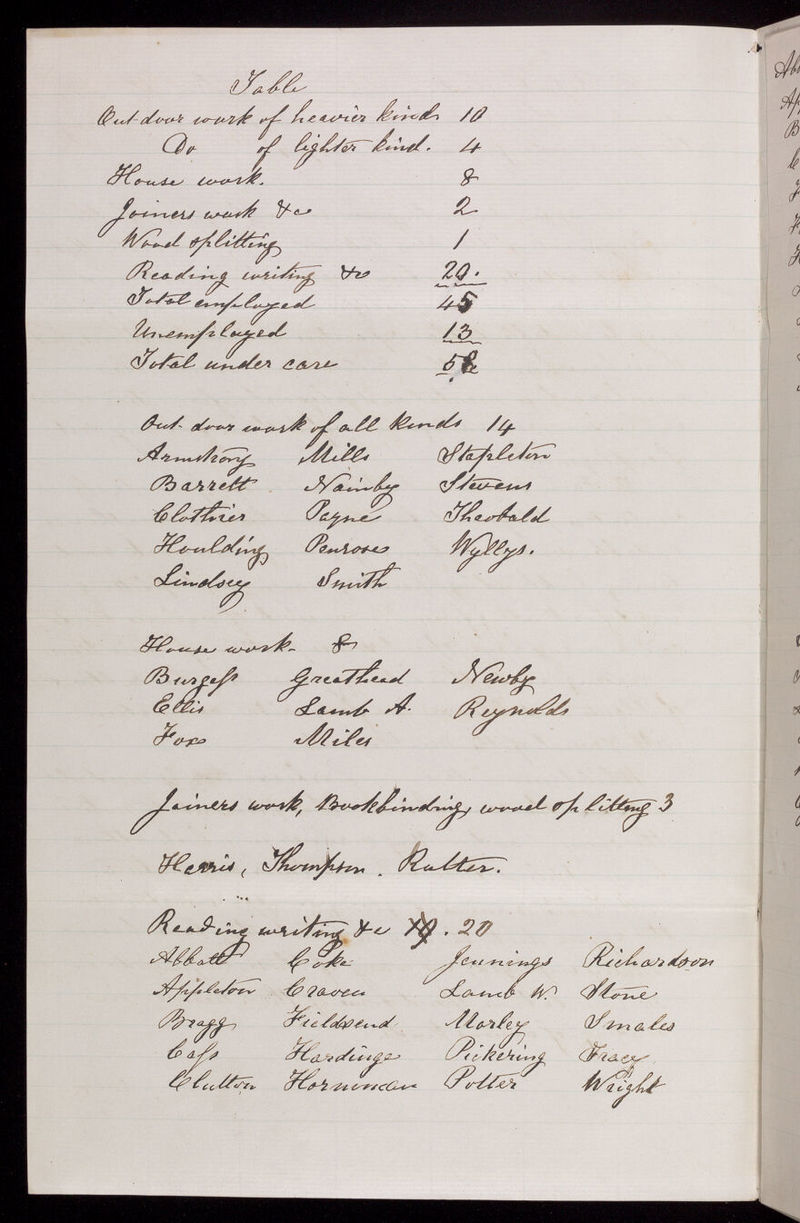 Table
Out door work of heavier kinds 10
Do of lighter kind. 4
House work. 8
Joiners work &c 2
Wood splitting 1
Reading writing &c 20.
Total employed 45
Unemployed 13
Total under care 58
Out door work of all kinds 14
Armstrong Mills Stapleton
Barrett Nainby Stevens
Clothier Payne Theobald
Houlding Penrose Wyllys.
Lindsey Smith
House work - 8
Burgess Greathead Newby
Ellis Lamb A. Reynolds
Fox Miles
Joiners work, Bookbinding, wood splitting 3
Harris, Thompson. Rutter.
Reading writing &c . 20
Abbott Coke Jennings Richardson
Appleton Craven Lamb W. Stone
Bragg Fieldsend Morley Smales
Cass Hardinge Pickering Tracy
Clutton Horniman Potter Wright